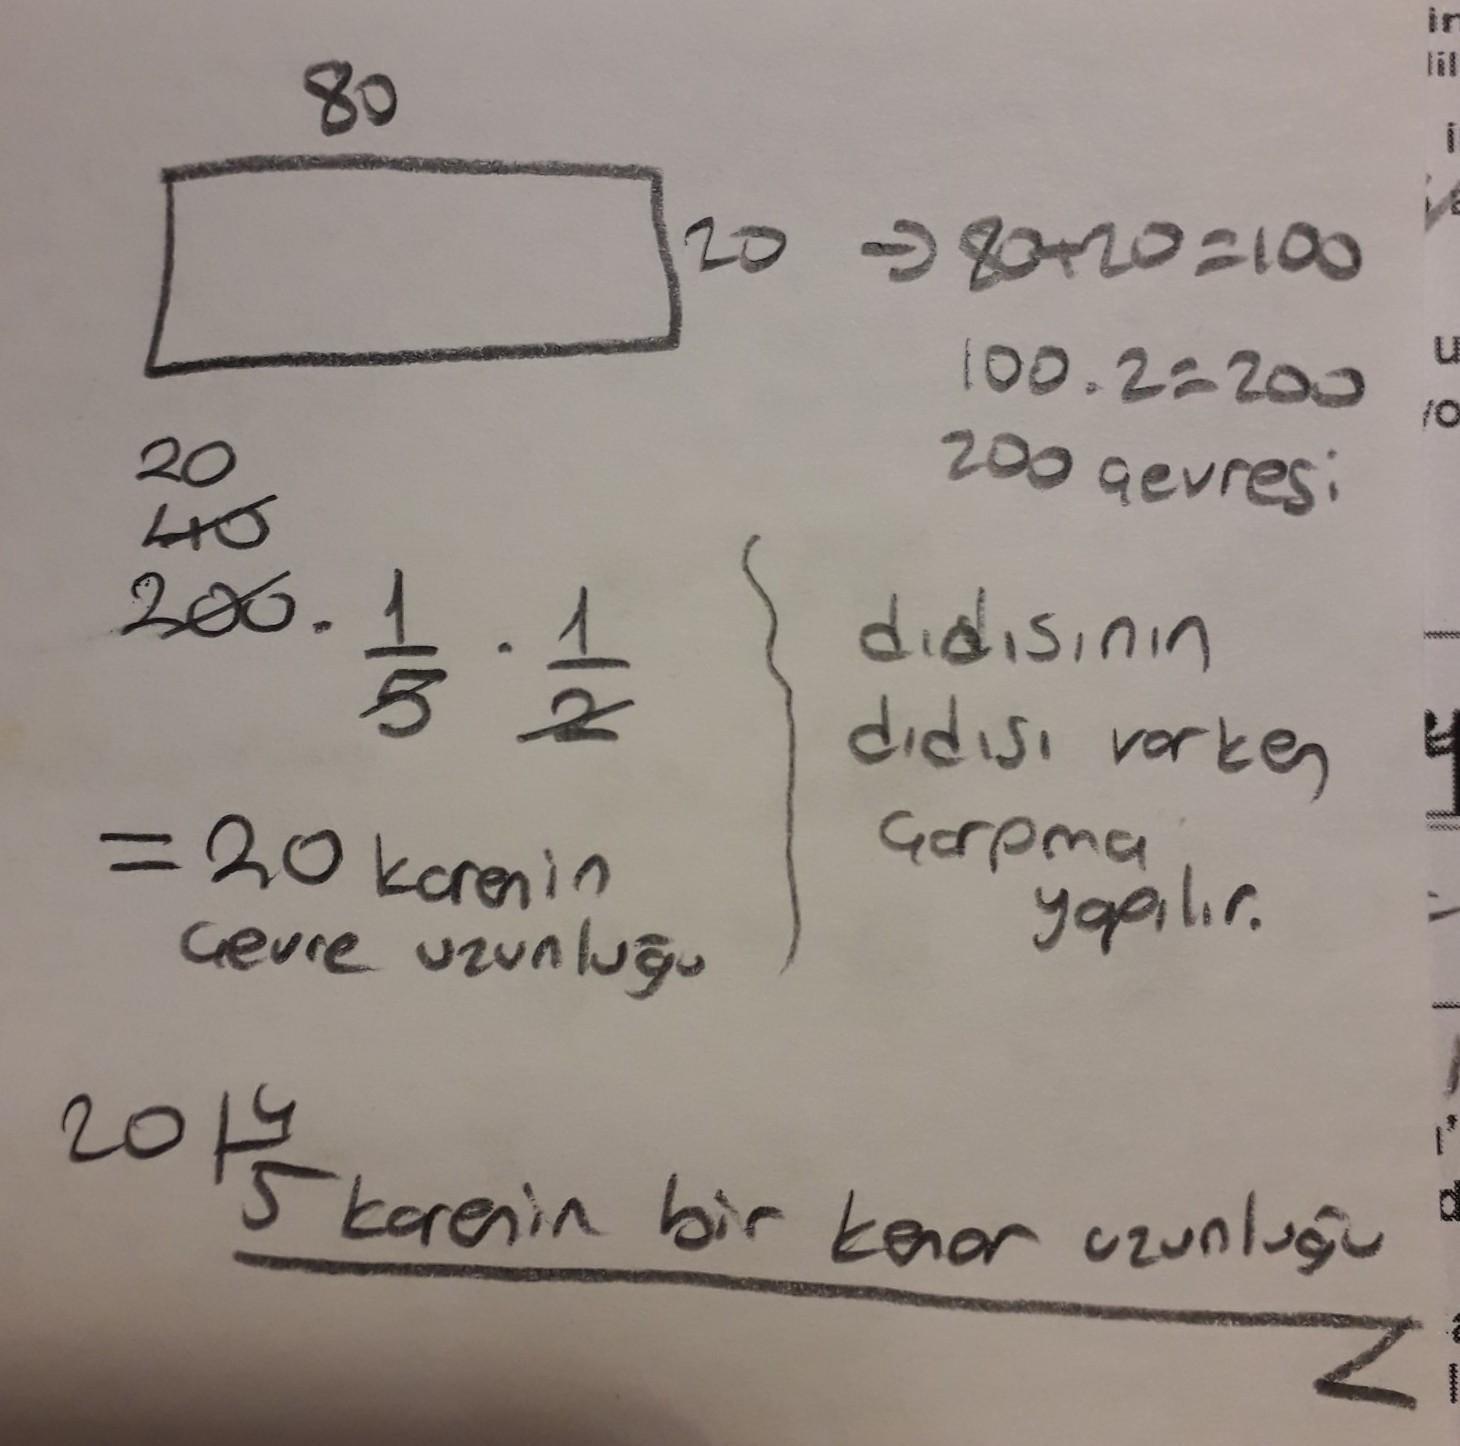 80
20 => 80+20=100
100.2=200
200 çevresi
20
40
200 . 1/5 . 1/2
= 20 karenin
çevre uzunluğu
dıdısının
dıdısı varken
çarpma
yapılır.
20 4
5 karenin bir kenar uzunluğu